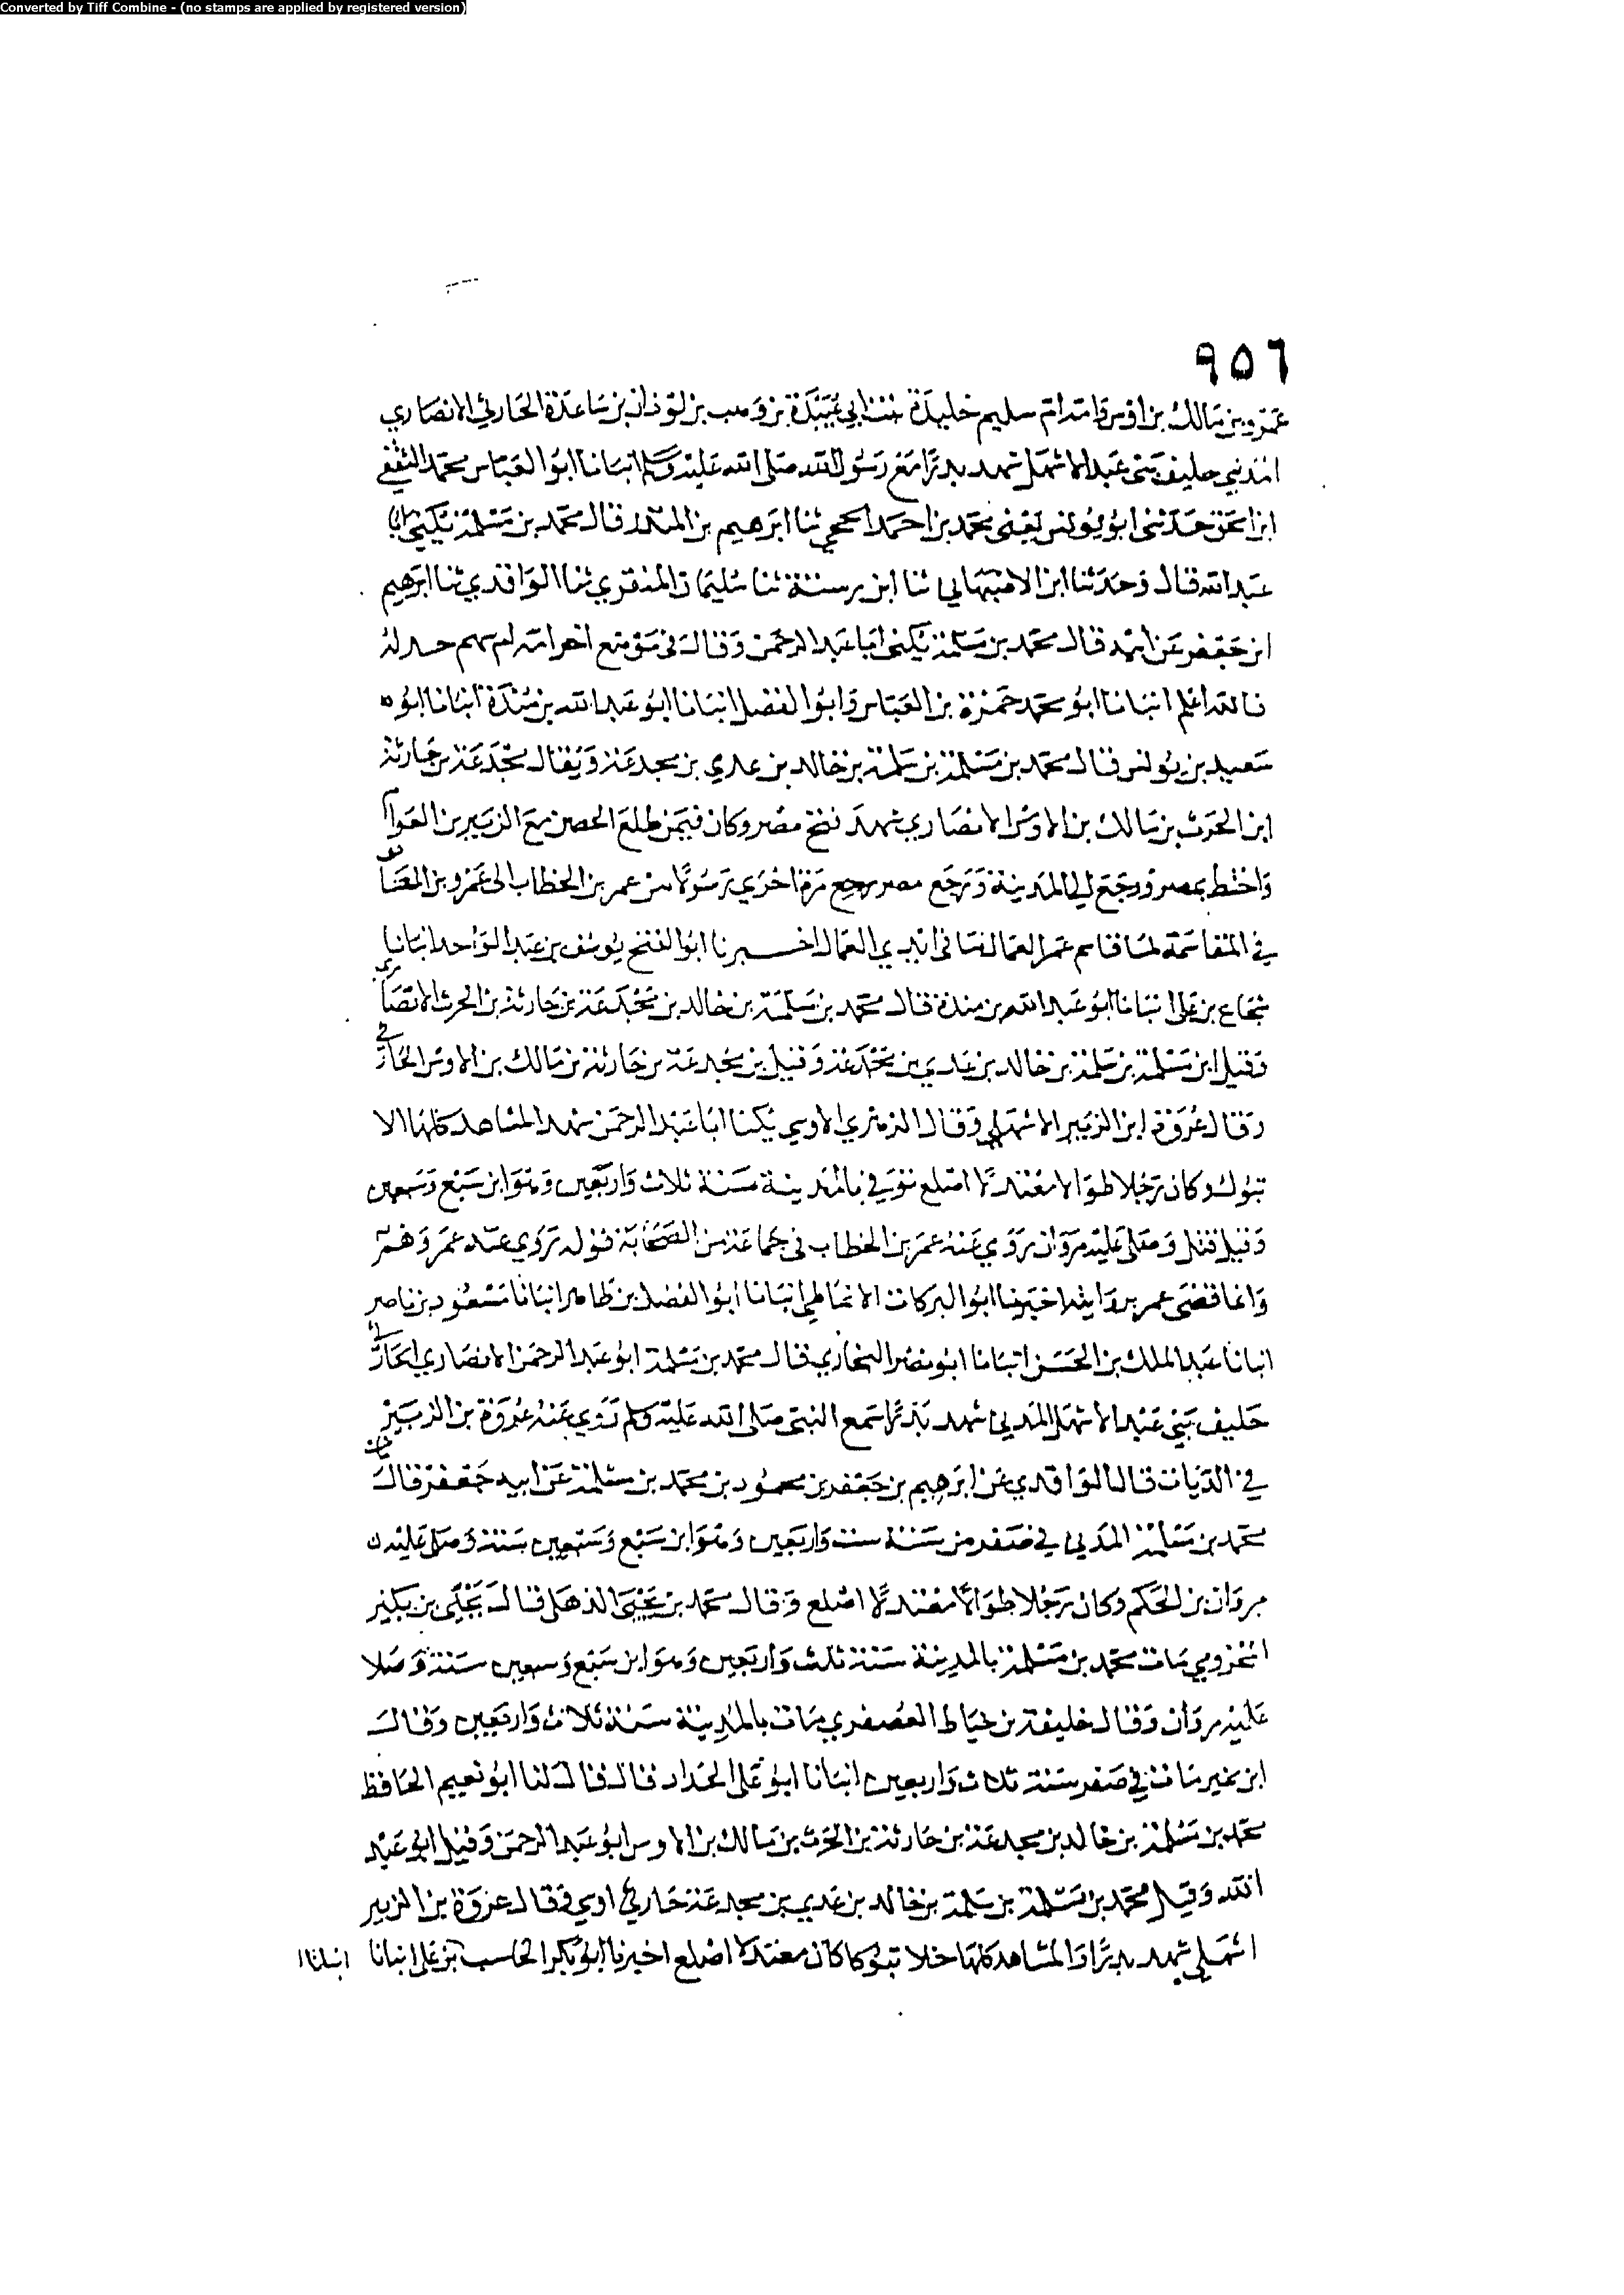 Converted by Tiff Combine - (no stamps are applied by registered version)
٩٥٦
عمرو بن مالك بن اوس وامه ام سليم خليدة بنت ابي عبيدة بن وهب بن لوذان بن ساعدة الحارثي الانصاري
المدني حليف بني عبد الاشهل شهد بدرا مع رسول الله صلى الله عليه وسلم انبانا ابو العباس محمد الثقفي
ابن اسحق حدثني ابو يونس يعني محمد بن احمد الجمحي ثنا ابرهيم بن المنذر قال محمد بن مسلمة يكنى ابا
عبد الله قال وحدثنا ابن الاصبهاني ثنا ابن رستة ثنا سليمان المنقري ثنا الواقدي ثنا ابرهيم
ابن جعفر عن ابيه قال محمد بن مسلمة يكنى ابا عبد الرحمن وقال في موضع اخر امه ام سهم
فالله اعلم انبانا ابو محمد حمزة بن العباس وابو الفضل انبانا ابو عبد الله بن مندة انبانا ابو
سعيد بن يونس قال محمد بن مسلمة بن سلمة بن خالد بن عدي بن مجدعة ويقال مجدعة بن حارثة
ابن الحرث بن مالك بن الاوس الانصاري شهد فتح مصر وكان فيمن طلع الحصن مع الزبير بن العوام
واختط بمصر ورجع الى المدينة ورجع مصر مرة اخرى رسولا من عمر بن الخطاب الى عمرو بن العاص
في المقاسمة لما قاسم عمر العمال ما في ايدي العمال اخبرنا ابو الفتح يوسف بن عبد الواحد انبانا
شجاع بن علي انبانا ابو عبد الله بن مندة قال محمد بن مسلمة بن خالد بن مجدعة بن حارثة بن الحرث الانصاري
وقيل ابن مسلمة بن سلمة بن خالد بن عدي بن مجدعة وقيل بن مجدعة بن حارثة بن مالك بن الاوس الحارثي
وقال عروة ابن الزبير الاشهلي وقال الزهري الاوسي يكنا ابا عبد الرحمن شهد المشاهد كلها الا
تبوك وكان رجلا طوالا معتدلا اصلع توفي بالمدينة سنة ثلاث واربعين وهو ابن سبع وسبعين
وقيل قتل وصلى عليه مروان روي عنه عمر بن الخطاب في جماعة من الصحابة قوله تروي عنه عمر وهم
وانما قضى عمر بروايته اخبرنا ابو البركات الانماطي انبانا ابو الفضل بن طاهر انبانا مسعود بن ناصر
انبانا عبد الملك بن الحسن انبانا ابو نصر البخاري قال محمد بن مسلمة ابو عبد الرحمن الانصاري الحارثي
حليف بني عبد الاشهل المدني شهد بدرا سمع النبي صلى الله عليه وسلم روي عنه عروة بن الزبير
في الديات قال الواقدي عن ابرهيم بن جعفر بن محمود بن محمد بن مسلمة عن ابيه جعفر قال مات
محمد بن مسلمة المدني في صفر من سنة ست واربعين وهو ابن سبع وسبعين سنة وصلى عليه
مروان بن الحكم وكان رجلا طوالا معتدلا اصلع وقال محمد بن يحيى الذهلي قال يحيى بن بكير
المخزومي مات محمد بن مسلمة بالمدينة سنة ثلث واربعين وهو ابن سبع وسبعين سنة وصلا
عليه مروان وقال خليفة بن خياط العصفري مات بالمدينة سنة ثلاث واربعين وقال
ابن نمير مات في صفر سنة ثلاث واربعين انبانا ابو علي الحداد قال قال لنا ابو نعيم الحافظ
محمد بن مسلمة بن خالد بن مجدعة بن حارثة بن الحرث بن مالك بن الاوس ابو عبد الرحمن وقيل ابو عبد
الله وقيل محمد بن مسلمة بن سلمة بن خالد بن عدي بن مجدعة حارثي اوسي وقال عروة بن الزبير
اشهلي شهد بدرا والمشاهد كلها خلا تبوكا كان معتدلا اصلع اخبرنا ابو بكر الحاسب بن علي انبانا